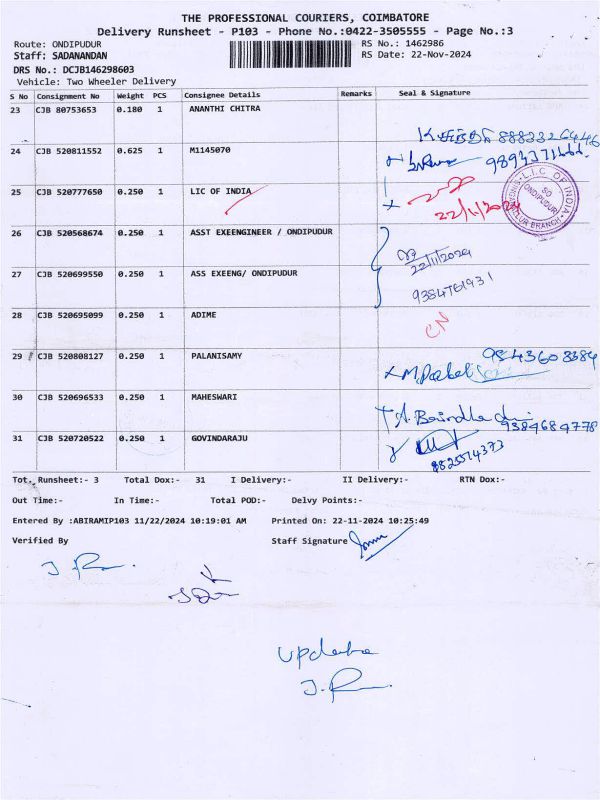 THE PROFESSIONAL COURIERS, COIMBATORE
Delivery Runsheet - P103 - Phone No.:0422-3505555 - Page No.:3
Route: ONDIPUDUR RS No.: 1462986
Staff: SADANANDAN RS Date: 22-Nov-2024
DRS No.: DCJB146298603
Vehicle: Two Wheeler Delivery
S No Consignment No Weight PCS Consignee Details Remarks Seal & Signature
23 CJB 80753653 0.180 1 ANANTHI CHITRA
8883326446
24 CJB 520811552 0.625 1 M1145070
25 CJB 520777650 0.250 1 LIC OF INDIA
22/11/2024
L.I.C OF INDIA
SO
ONDIPUDUR
26 CJB 520568674 0.250 1 ASST EXEENGINEER / ONDIPUDUR
22/11/2024
27 CJB 520699550 0.250 1 ASS EXEENG/ ONDIPUDUR
9384761931
28 CJB 520695099 0.250 1 ADIME
CN
29 CJB 520808127 0.250 1 PALANISAMY
9543608384
30 CJB 520696533 0.250 1 MAHESWARI
9384684778
31 CJB 520720522 0.250 1 GOVINDARAJU
8825574373
Tot. Runsheet:- 3 Total Dox:- 31 I Delivery:- II Delivery:- RTN Dox:-
Out Time:- In Time:- Total POD:- Delvy Points:-
Entered By :ABIRAMIP103 11/22/2024 10:19:01 AM Printed On: 22-11-2024 10:25:49
Verified By Staff Signature